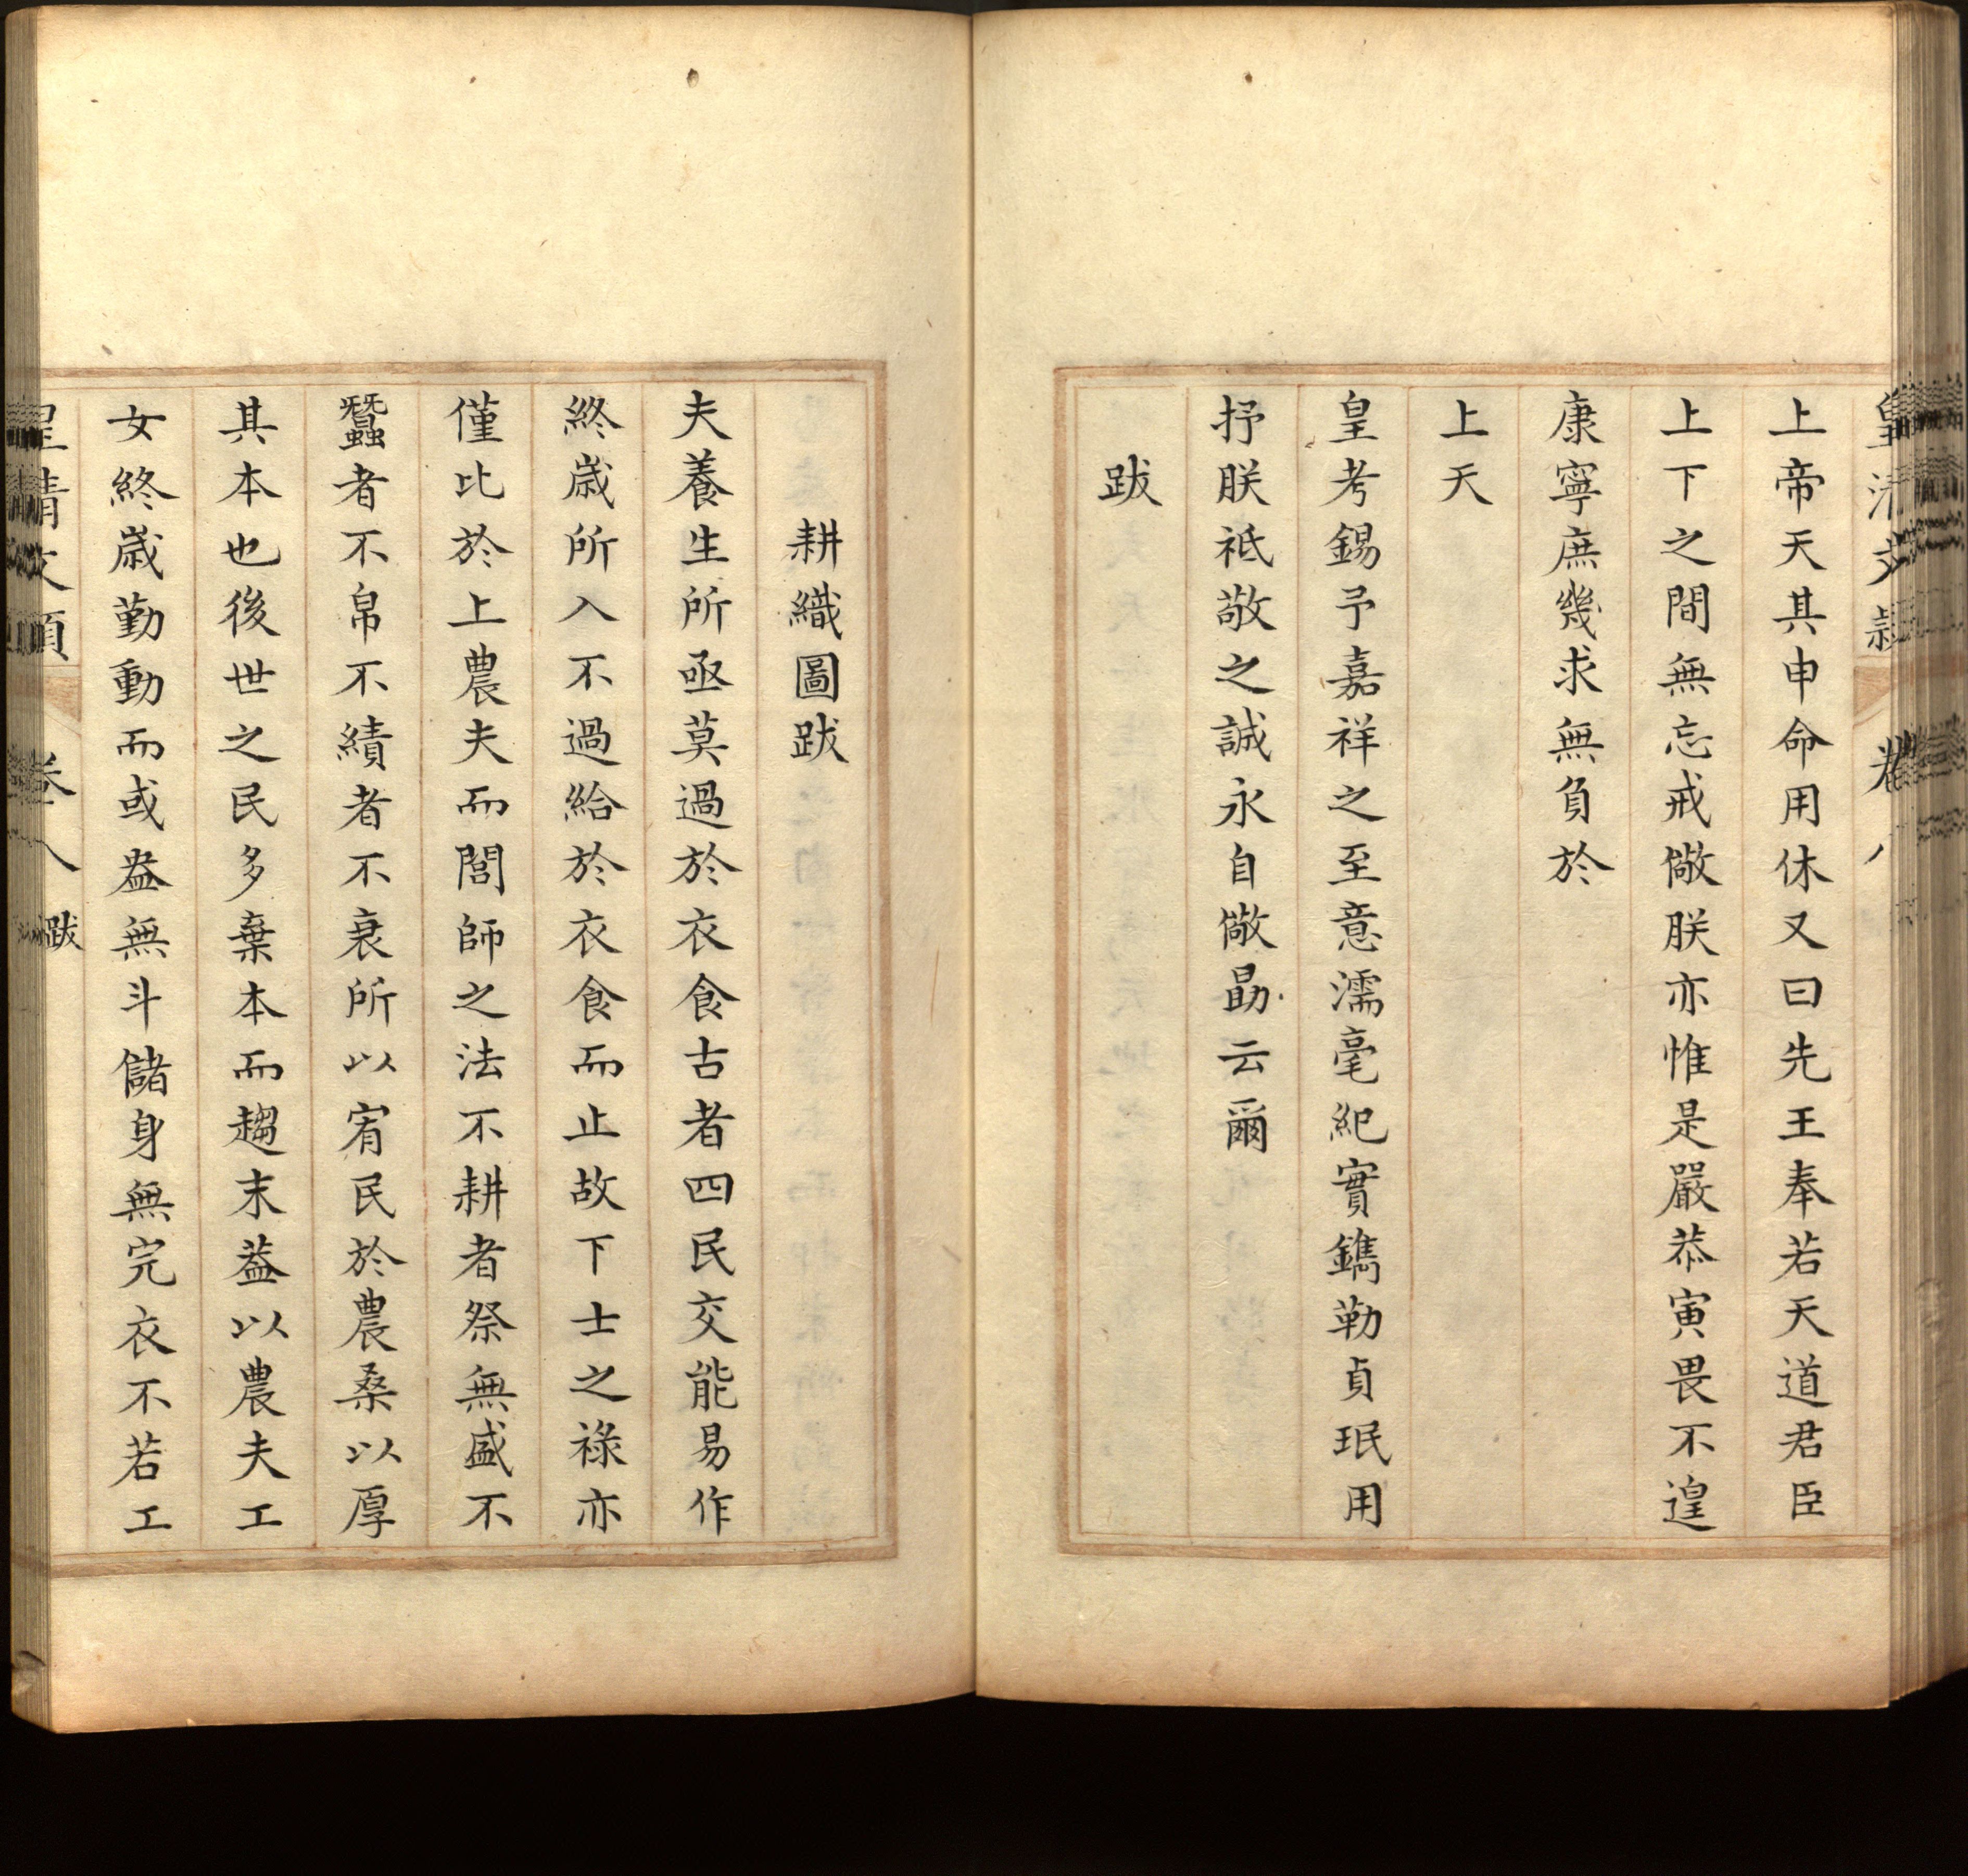 皇清文穎 卷八
上帝天其申命用休又曰先王奉若天道君臣
上下之間無忘戒儆朕亦惟是嚴恭寅畏不遑
康寧庶幾求無負於
上天
皇考錫予嘉祥之至意濡毫紀實鐫勒貞珉用
抒朕祗敬之誠永自儆勗云爾
跋
耕織圖跋
夫養生所亟莫過於衣食古者四民交能易作
終歲所入不過給於衣食而止故下士之祿亦
僅比於上農夫而閭師之法不耕者祭無盛不
蠶者不帛不績者不衰所以宥民於農桑以厚
其本也後世之民多棄本而趨末葢以農夫工
女終歲勤動而或盎無斗儲身無完衣不若工
皇清文穎 卷八 跋